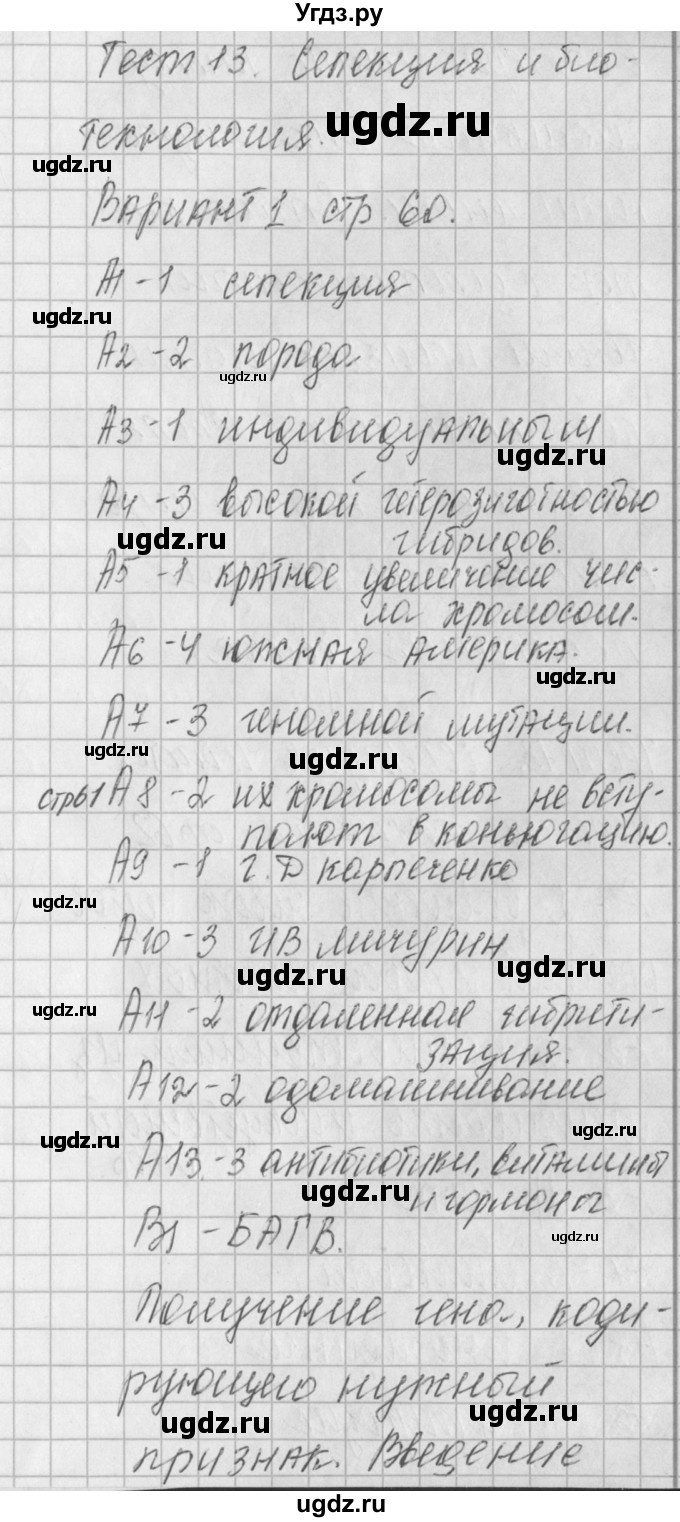 Угдз.ру
Тест 13. Селекция и био-
ugdz.ru
технология.
ugdz.ru
Вариант 1 стр 60.
А1 - 1 селекция
ugdz.ru
А2 - 2 порода
ugdz.ru
А3 - 1 индивидуальным
ugdz.ru
А4 - 3 высокой гетерозиготностью
ugdz.ru гибридов.
А5 - 1 кратное увеличение чис-
ла хромосом.
А6 - 4 южная америка.
ugdz.ru
А7 - 3 геномной мутации.
ugdz.ru
стр61 А8 - 2 их хромосомы не всту-
пают в коньюгацию.
А9 - 1 Г.Д Карпеченко
ugdz.ru
А10 - 3 И В Мичурин
ugdz.ru ugdz.ru
ugdz.ru А11 - 2 отдаленная гибрити-
зация.
А12 - 2 одомашнивание
ugdz.ru ugdz.ru
А13 - 3 антибиотики, витамины
ugdz.ru и гормоны
В1 - БАГВ.
ugdz.ru
Получение гена, коди-
рующего нужный
ugdz.ru ugdz.ru
признак. Введение
ugdz.ru